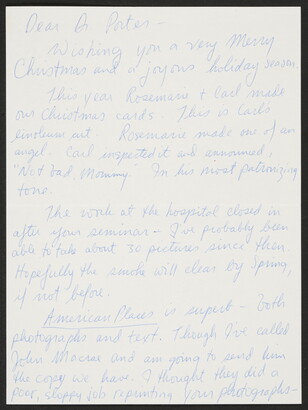 Dear Dr Porter –
Wishing you a very Merry
Christmas and a joyous holiday season.
This year Rosemarie + Carl made
our Christmas cards. This is Carl's
linoleum cut. Rosemarie made one of an
angel. Carl inspected it and announced,
"Not bad, Mommy" In his most patronizing
tone.
The work at the hospital closed in
after your seminar – I've probably been
able to take about 30 pictures since then.
Hopefully the smoke will clear by Spring,
if not before.
American Places is superb – both
photographs and text. Though I've called
John Macrae and am going to send him
the copy we have. I thought they did a
poor, sloppy job reprinting your photographs–